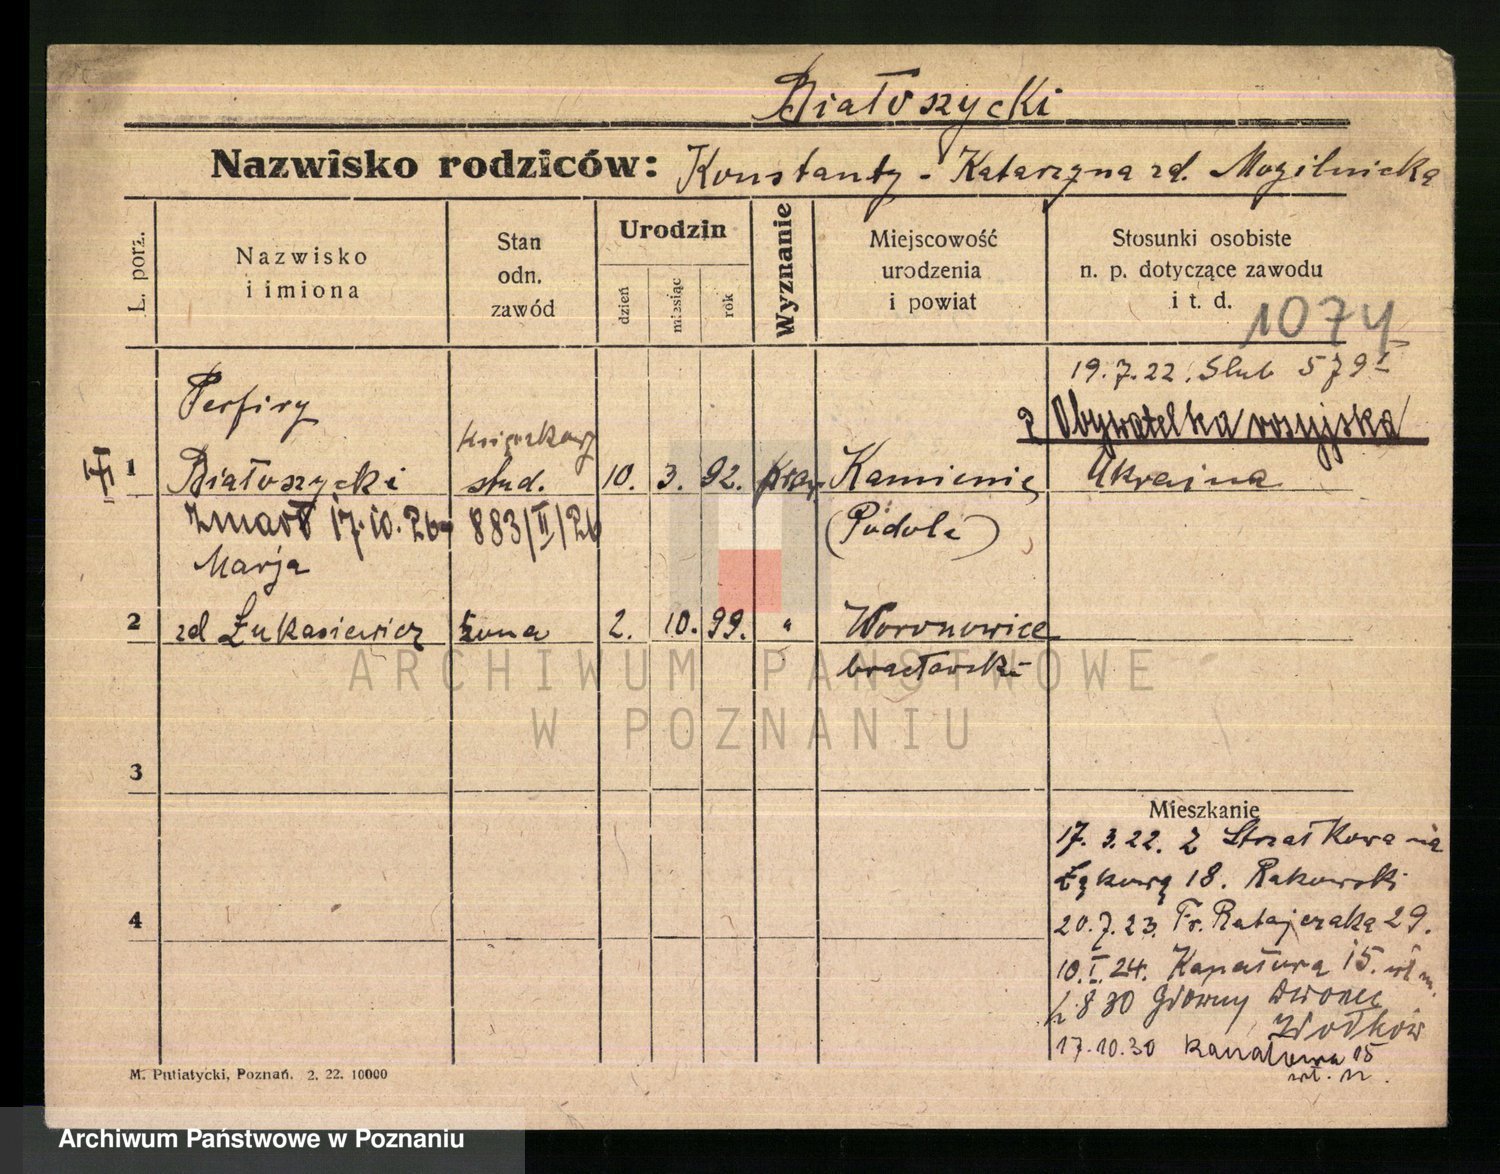 Białoszycki
Nazwisko rodziców: Konstanty - Katarzyna zd. Mogilnicka
L. porz.
Nazwisko
i imiona
Stan
odn.
zawód
Urodzin
dzień
miesiąc
rok
Wyznanie
Miejscowość
urodzenia
i powiat
Stosunki osobiste
n. p. dotyczące zawodu
i t. d.
1074
19.7.22. Slub 579
Perfiry
Obywatelka rosyjska
1 Białoszycki stud. 10. 3. 92. Kamienic Ukraina
Zmarł 17.10.26 883/II/26 (Podole)
Marja
2 zd Łukasiewicz żona 2. 10. 99. " Woronowice
bracławski
ARCHIWUM PAŃSTWOWE
W POZNANIU
3
Mieszkanie
17. 3. 22. Z Strzałkowa na
Łąkową 18. Rakowski
4
20.7.23. Fr. Ratajczaka 29.
10.I.24. 15. wł m.
8 30 Główny dworzec
17.10.30 Kanałowa 15
wł. m.
M. Putiatycki, Poznań. 2. 22. 10000
Archiwum Państwowe w Poznaniu